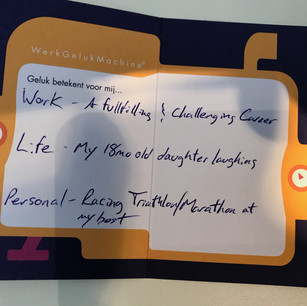 WerkGelukMachine®
Geluk betekent voor mij...
Work - A fullfilling & Challenging Career
Life - My 18mo old daughter laughing
Personal - Racing Triathlon/Marathon at
my best